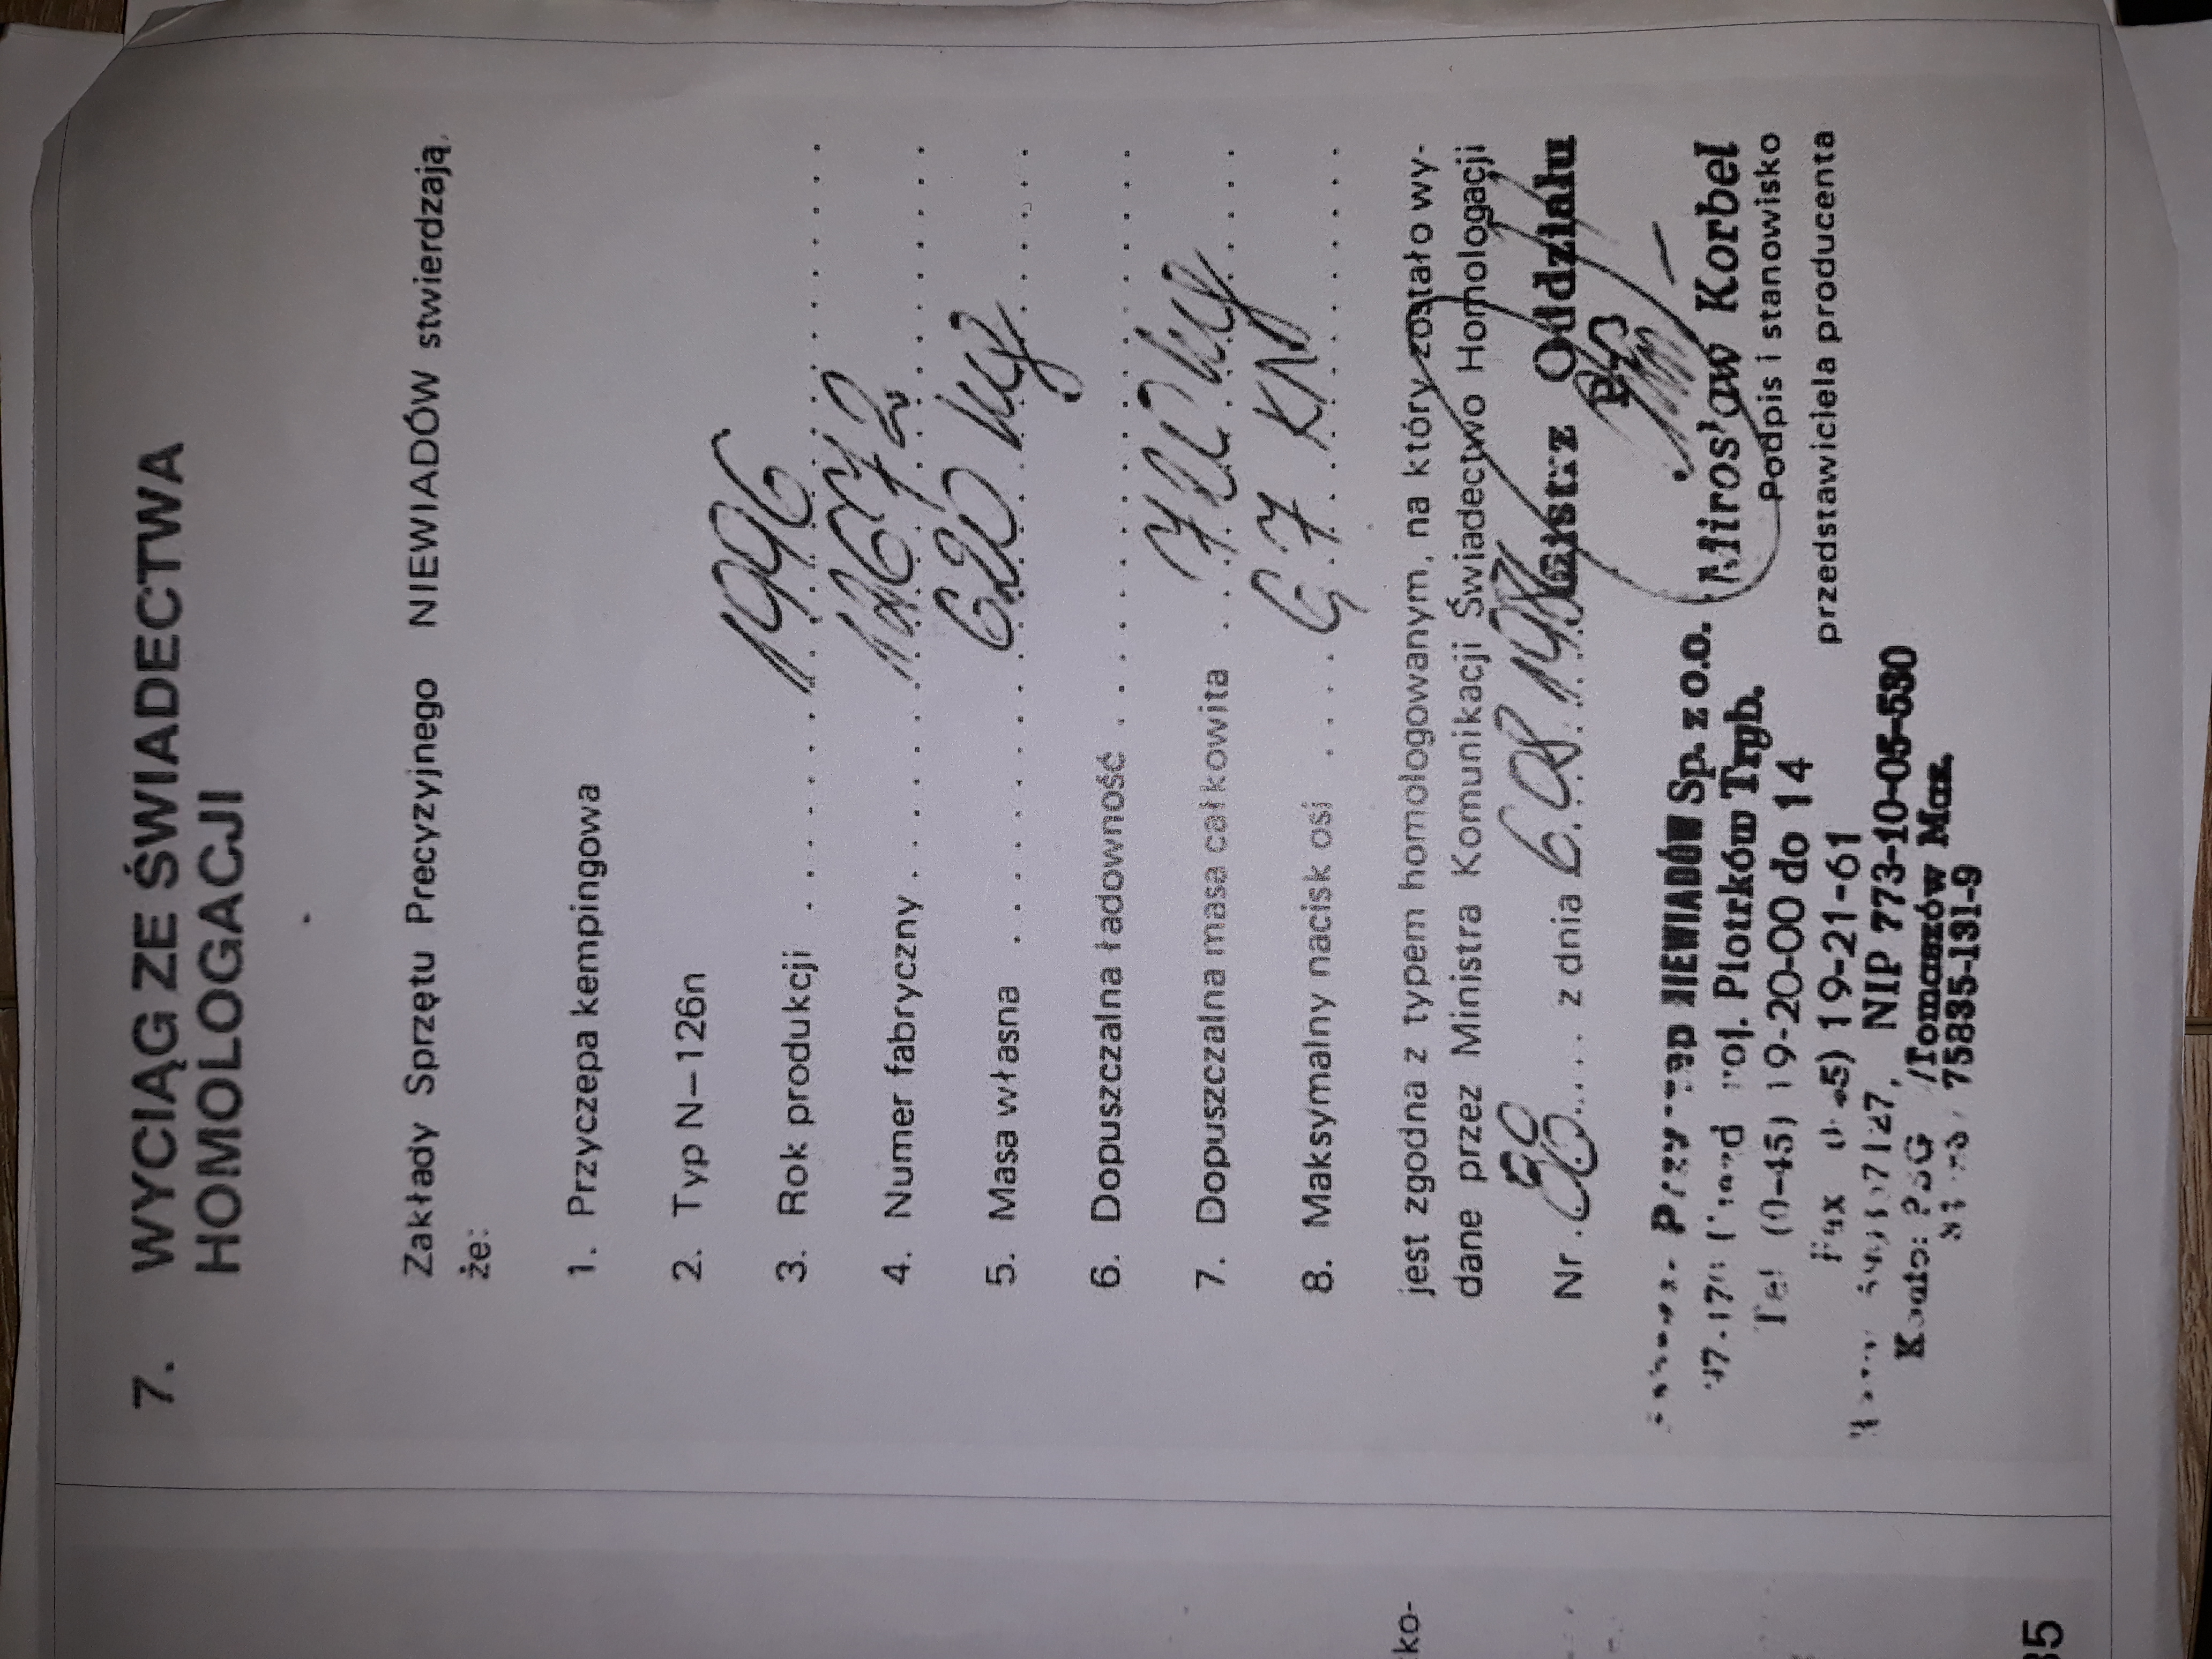 7. WYCIĄG ZE ŚWIADECTWA
HOMOLOGACJI
Zakłady Sprzętu Precyzyjnego NIEWIADÓW stwierdzają,
że:
1. Przyczepa kempingowa
2. Typ N–126n
3. Rok produkcji 1996
4. Numer fabryczny
5. Masa własna 620 kg
6. Dopuszczalna ładowność
7. Dopuszczalna masa całkowita 720 kg
8. Maksymalny nacisk osi 6,7 KN
jest zgodna z typem homologowanym, na który zostało wy-
dane przez Ministra Komunikacji Świadectwo Homologacji
Nr z dnia
Mistrz Oddziału
NIEWIADÓW Sp. z o.o.
Piotrków Tryb.
Tel (0-45) 19-20-00 do 14
19-21-61
NIP 773-10-05-530
/Tomaszów Maz.
75835-131-9
Mirosław Korbel
Podpis i stanowisko
przedstawiciela producenta
ko-
35